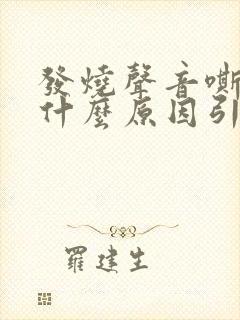 發燒聲音嘶
什麼原因引
羅建生